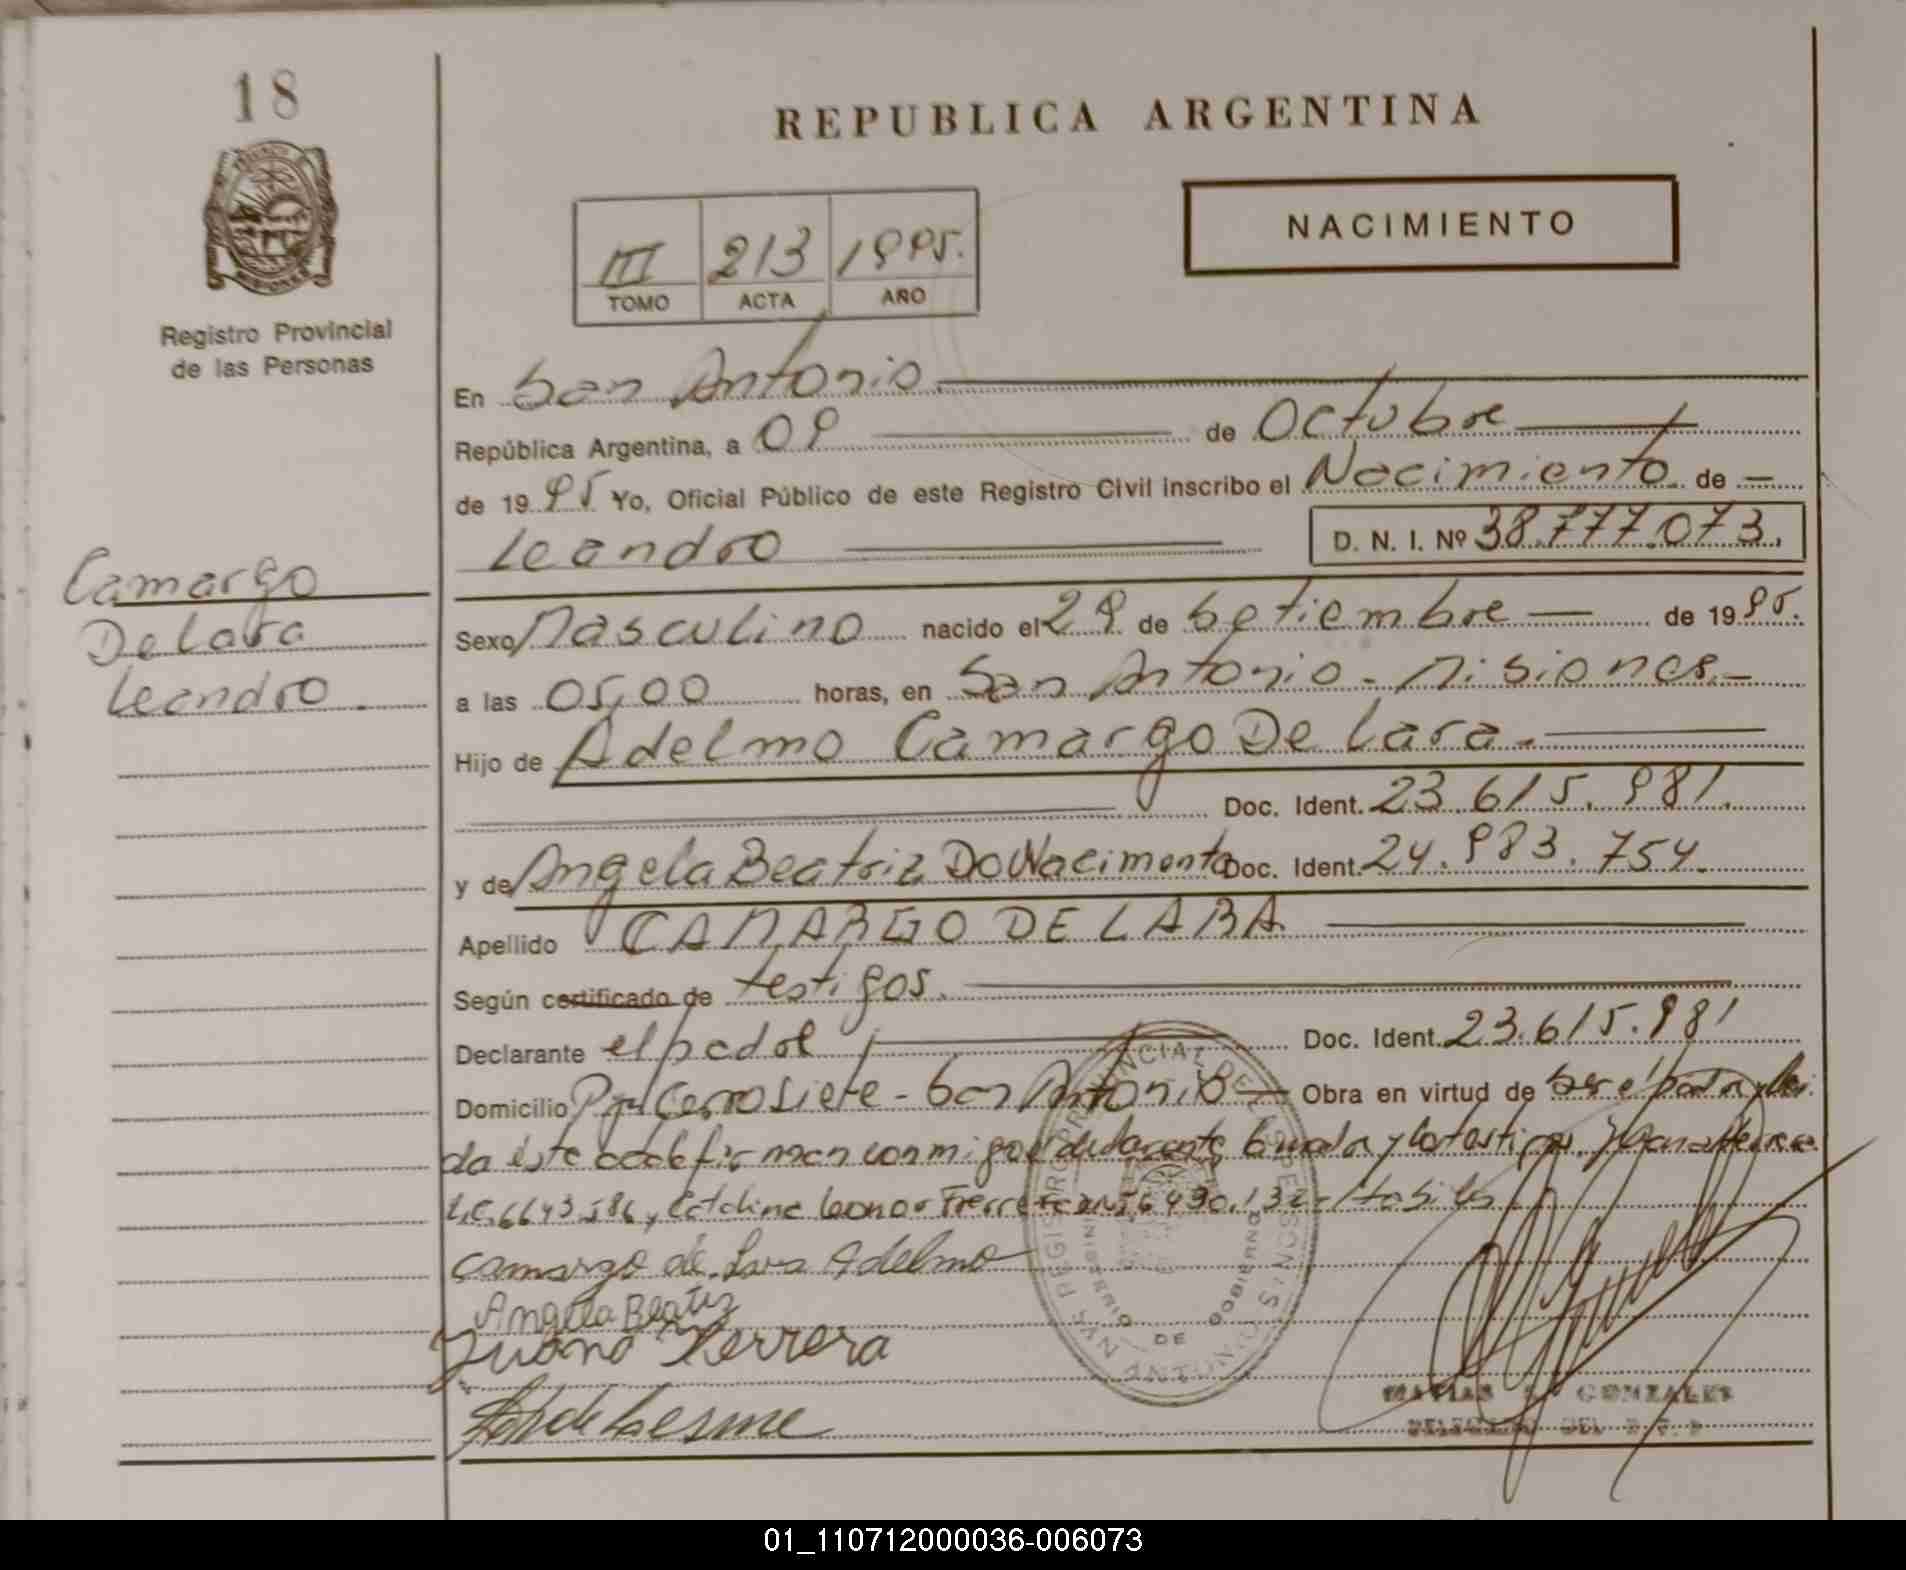 18
REPUBLICA ARGENTINA
NACIMIENTO
III 213 1995.
TOMO ACTA AÑO
Registro Provincial
de las Personas
En San Antonio
República Argentina, a 09 de Octubre
de 1995 Yo, Oficial Público de este Registro Civil inscribo el Nacimiento de
Leandro D. N. I. Nº 38.777.073.
Camargo
De Lara
Leandro.
Sexo Masculino nacido el 29 de Setiembre de 1995.
a las 05,00 horas, en San Antonio - Misiones.-
Hijo de Adelmo Camargo De Lara.
Doc. Ident. 23.615.981.
y de Angela Beatriz Do Nacimento Doc. Ident. 24.983.754.
Apellido CAMARGO DE LARA
Según certificado de testigos.
Declarante el padre Doc. Ident. 23.615.981
Domicilio Pje Cerro Siete - San Antonio Obra en virtud de ser el padre y
da este acta firman conmigo el declarante la madre y los testigos
L.C. 6643.586, Catalina Leonor
Camargo de Lara Adelmo
Angela Beatriz
Juana Herrera
REGISTRO PROVINCIAL DE LAS PERSONAS
MINISTERIO DE GOBIERNO
SAN ANTONIO
MATIAS GONZALEZ
DELEGADO DEL R.P.P
01_110712000036-006073